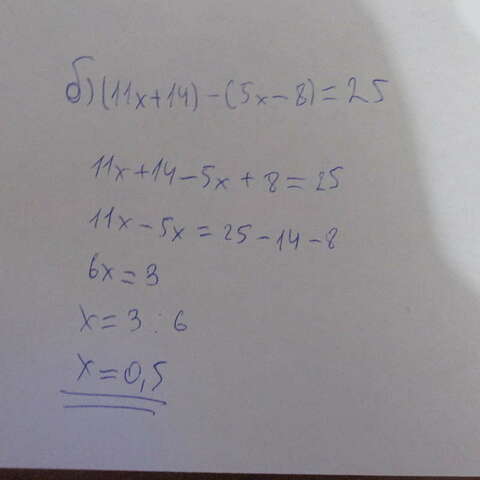 б) (11x+14)-(5x-8)=25
11x+14-5x+8=25
11x-5x=25-14-8
6x=3
x=3:6
x=0,5